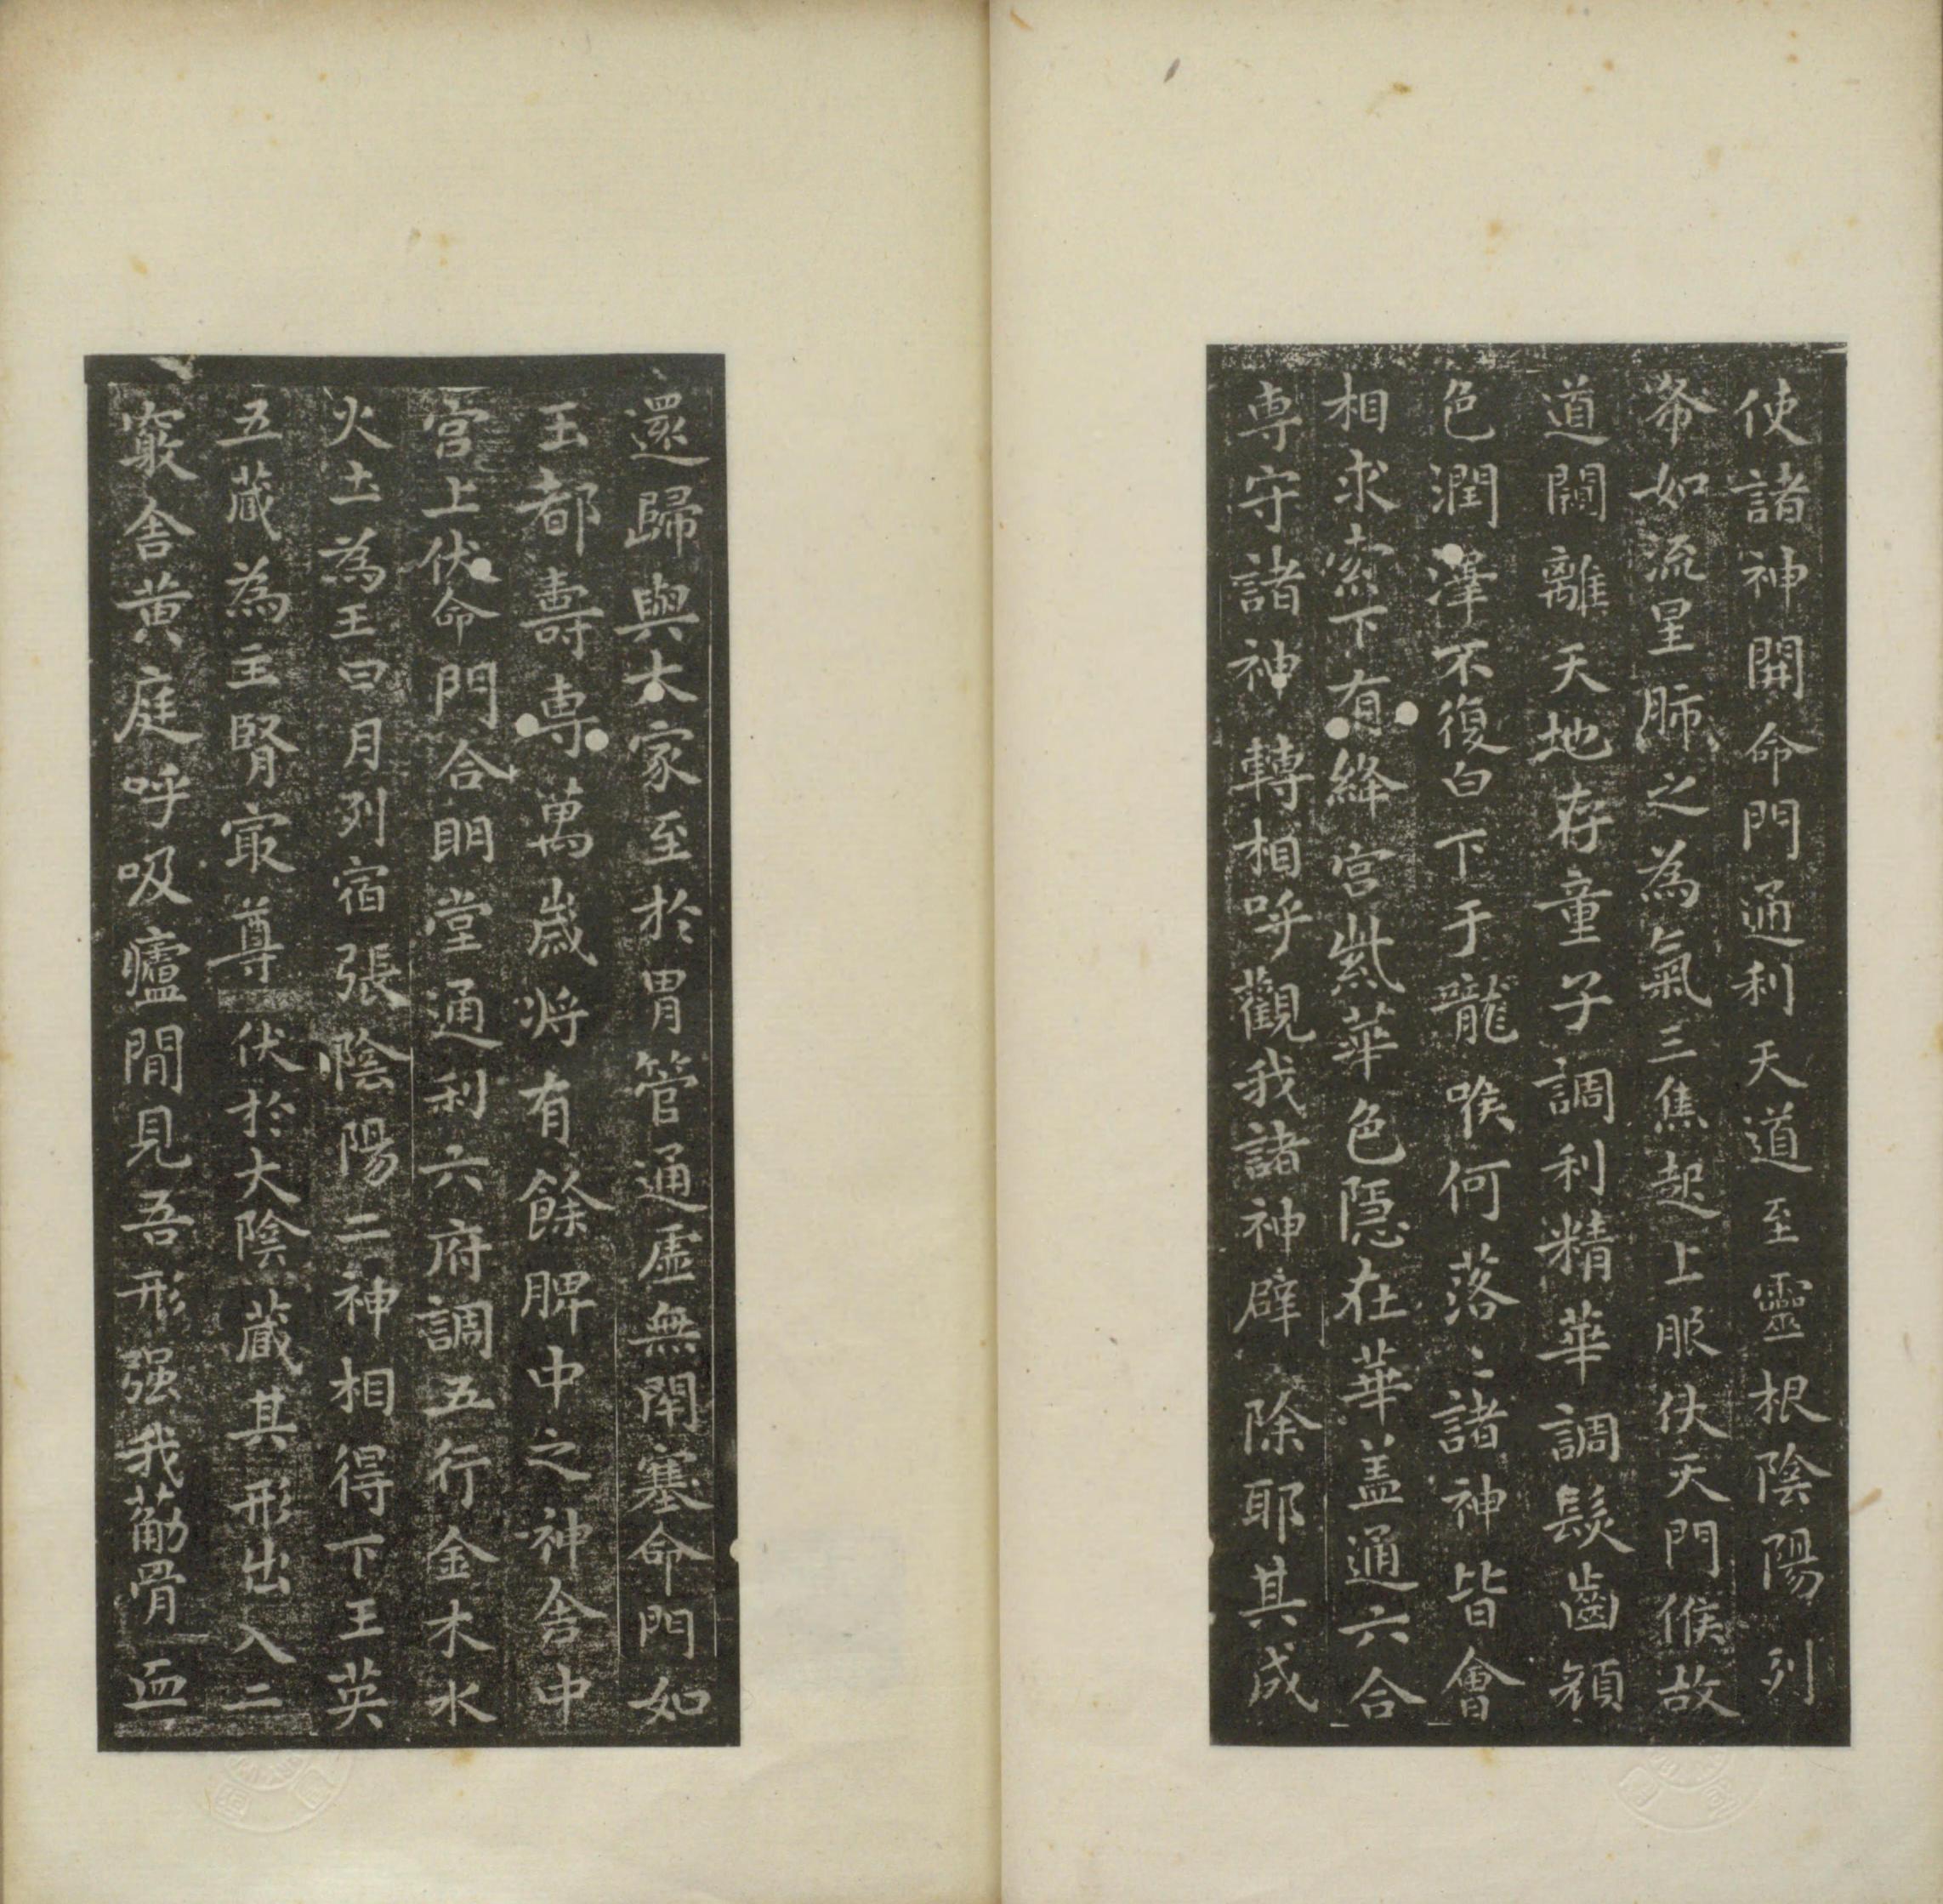 使諸神開命門通利天道至靈根陰陽列
布如流星肺之為氣三焦起上服伏天門候故
道闚離天地存童子調利精華調髮齒顏
色潤澤不復白下于嚨喉何落〻諸神皆會
相求索下有絳宮紫華色隱在華盖通六合
専守諸神轉相呼觀我諸神辟除耶其成
還歸與大家至於胃管通虛無閇塞命門如
玉都壽専萬歲将有餘脾中之神舎中
宮上伏命門合明堂通利六府調五行金木水
火土為王日月列宿張陰陽二神相得下玉英
五藏為主腎冣尊伏於大陰藏其形出入二
竅舎黄庭呼吸廬間見吾形强我筋骨血